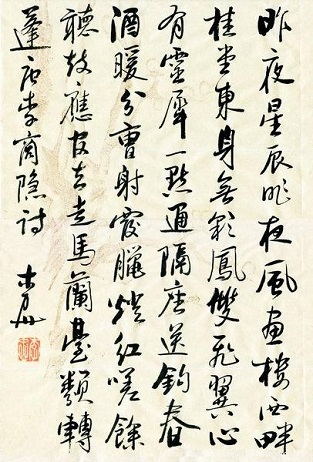 昨夜星辰昨夜風画樓西畔
桂堂東身無彩鳳雙飛翼心
有靈犀一點通隔座送鈎春
酒暖分曹射覆臘燈紅嗟餘
聽鼓應官去走馬蘭臺類轉
蓬唐李商隐詩